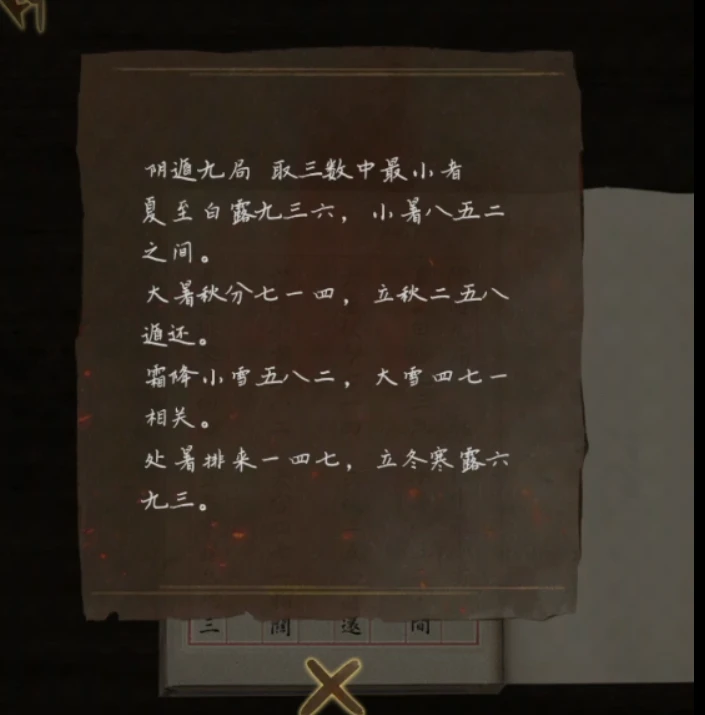 阴遁九局 取三数中最小者
夏至白露九三六，小暑八五二
之间。
大暑秋分七一四，立秋二五八
遁还。
霜降小雪五八二，大雪四七一
相关。
处暑排来一四七，立冬寒露六
九三。
三 關 遂 间